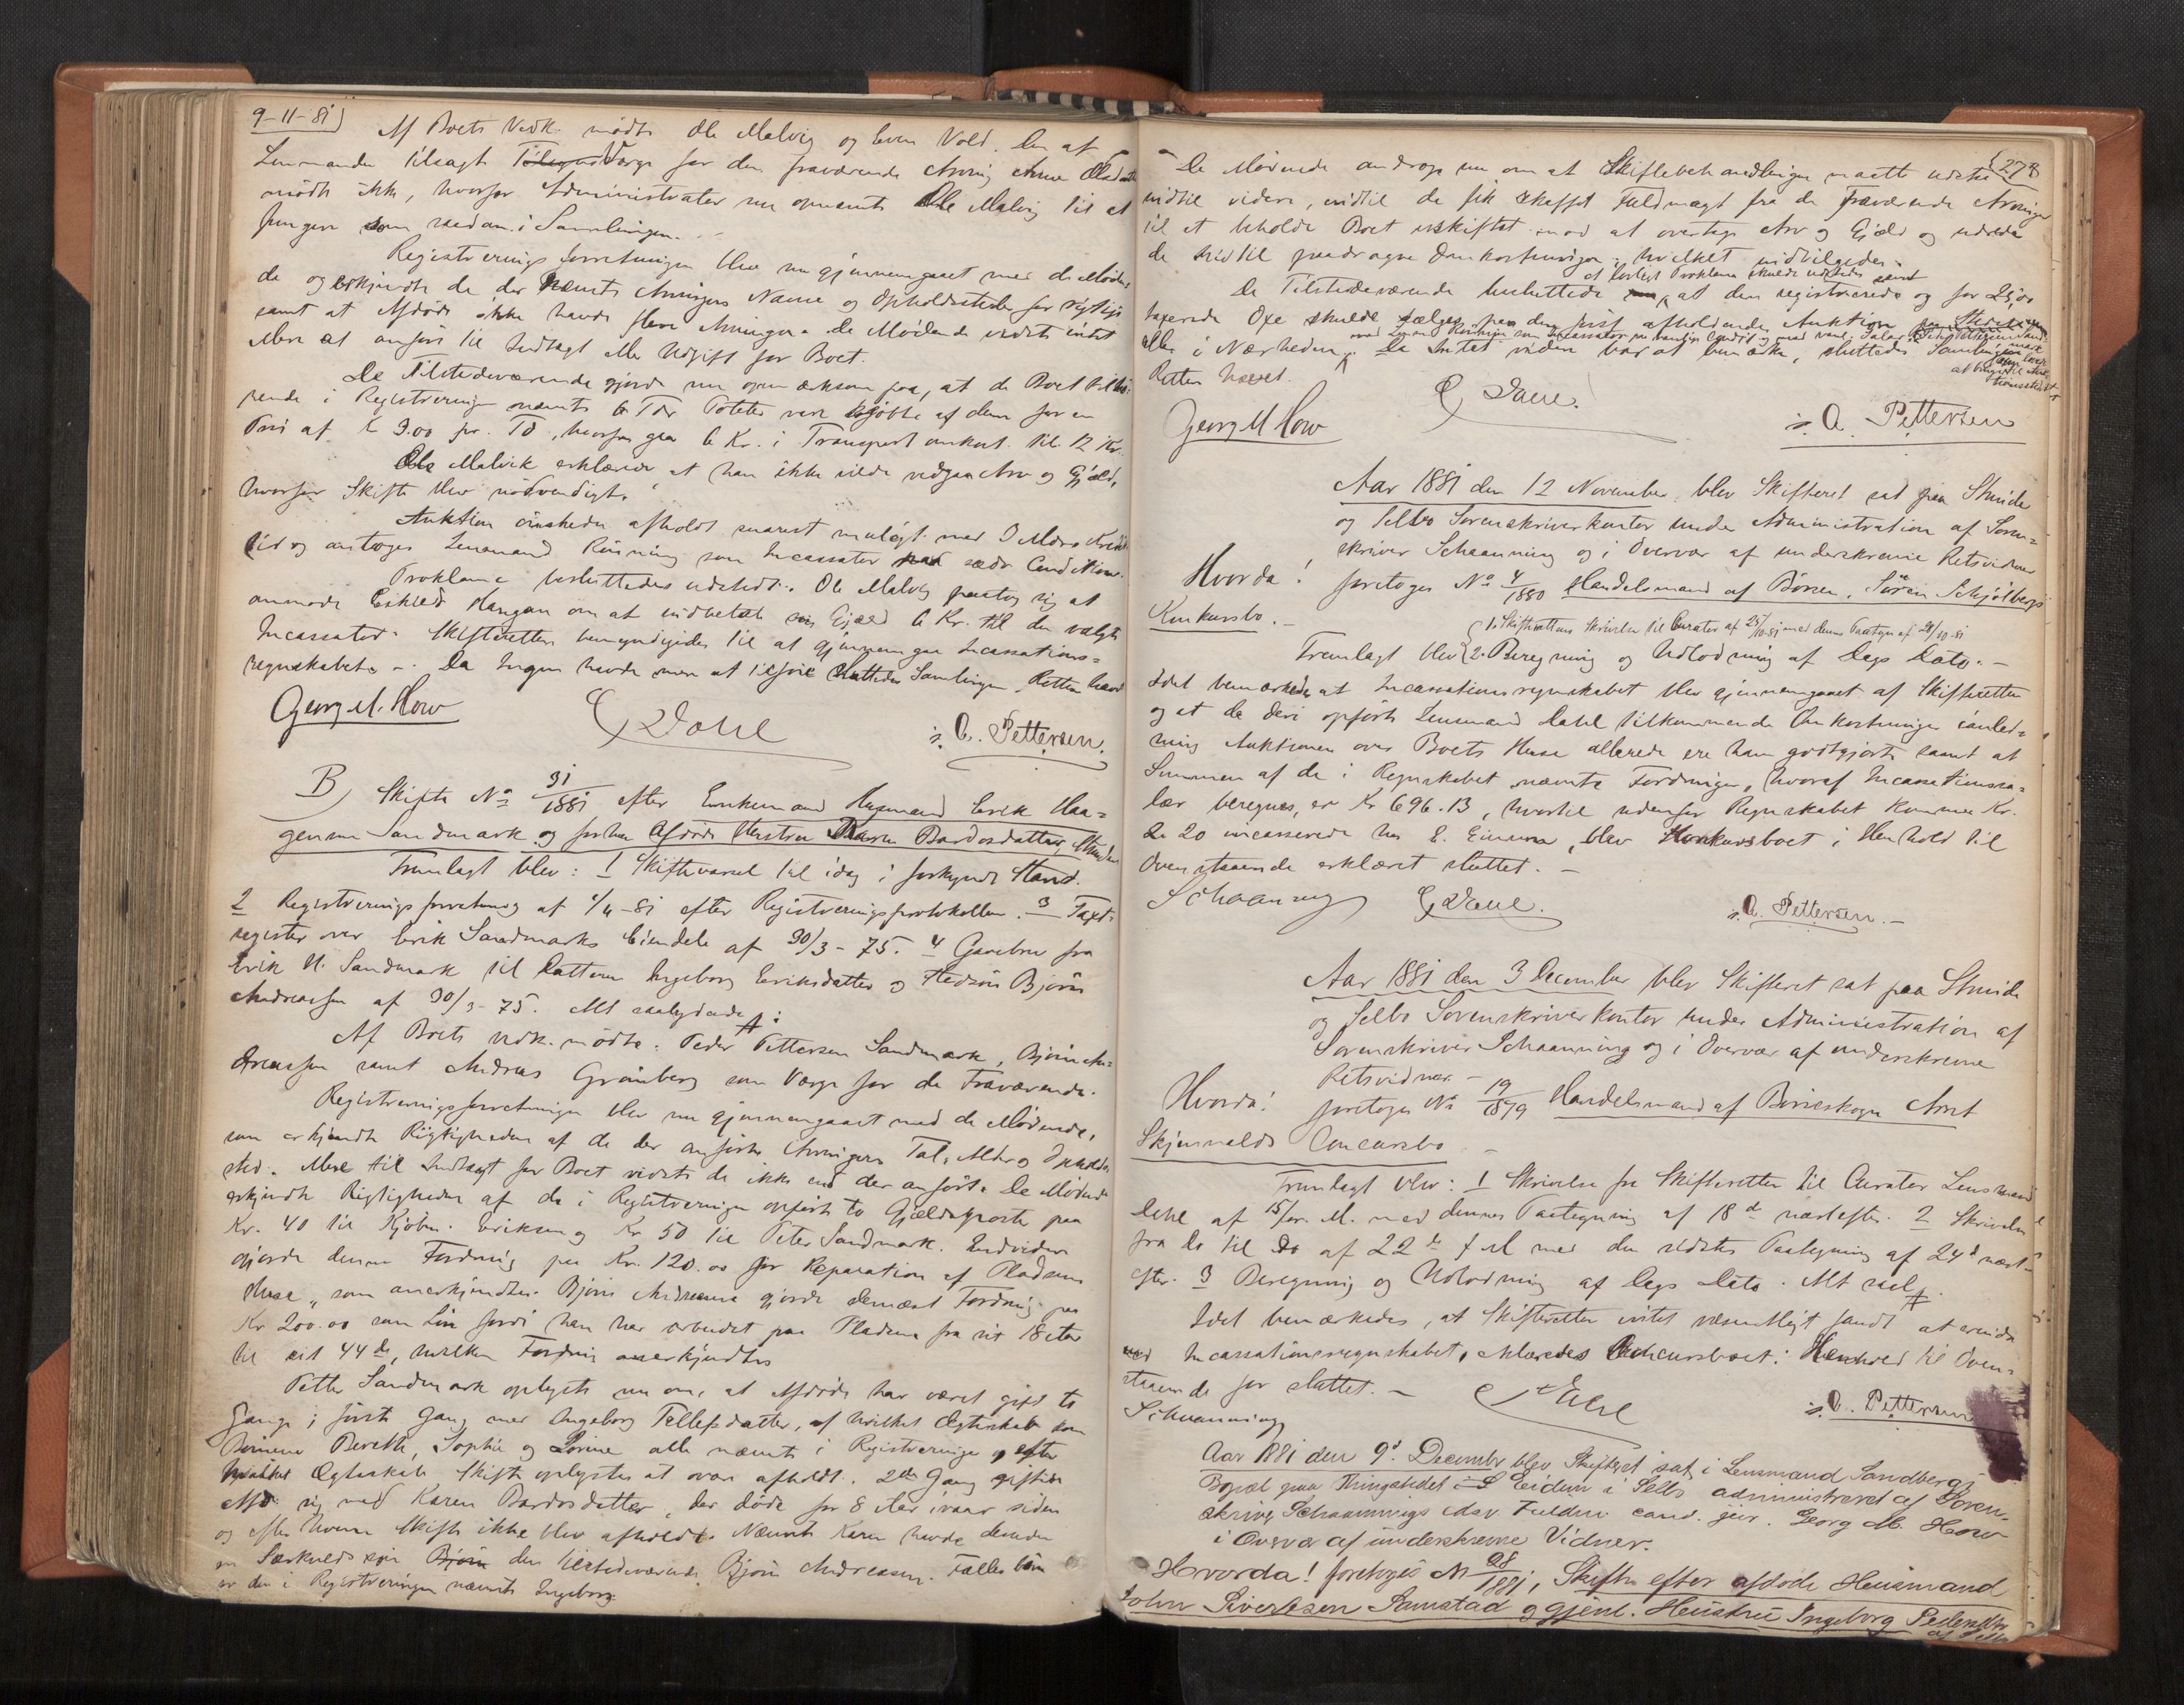 9-11-81)
Af Boets Vedk. mødte Ole Malvig og Even Vold. Den af
Lensmanden tilsagte Værge for den fraværende Arving Anne
mødte ikke, hvorfor Administrator nu opnævnte Ole Malvig til at
fungere som saadan i Samlingen.
Registreringsforretningen blev nu gjennemgaaet med de Møden-
de og erkjendte de der nævnte Arvingers Navne og Opholdssteder for rigtige
samt at Afdøde ikke havde flere Arvinger. De Mødende vidste intet
Mere at anføre til Indtægt eller Udgift for Boet.
De Tilstedeværende gjorde nu opmærksom paa, at de Boet tilhø-
rende i Registreringen nævnte 6 Tdr Poteter vare kjøbte af dem for en
Pris af 3.00 pr. Td, hvorfor gaa 6 Kr. i Transport omkost. til 12 Kr.
Ole Malvik erklærede at han ikke vilde vedgaa Arv og Gjæld,
hvorfor Skifte blev nødvendigt.
Auktion ønskedes afholdt snarest muligt med 3 Mdrs Kredit-
tid og antoges Lensmand Rønning som Incassator paa sædv. Conditioner.
Proklama besluttedes udstedt. Ole Malvig paatog sig at
anmode Eskild Haugan om at indbetale sin Gjæld 6 Kr. til den valgte
Incassator. Skifteretten bemyndigedes til at gjennemgaa Incassations-
regnskabet. - Da Ingen havde mere at tilføie sluttedes Samlingen. Retten hævet
Georg M. How
E Dahl
s. O. Pettersen.
B) Skifte No 31/1881 efter Enkemand Husmand Erik Haa-
gensen Sandmark og forhen afdøde Hustru Karen Bardosdatter,
Fremlagt blev: 1 Skiftevarsel til idag i forkyndt Stand.
2 Registreringsforretning af 4/4-81 efter Registreringsprotokollen. 3 Taxt-
register over Erik Sandmarks Eiendele af 30/3-75. 4 Gavebrev fra
Erik H. Sandmark til Datteren Ingeborg Eriksdatter og Stedsøn Bjørn
Andreassen af 30/3-75. Alt saalydende:
Af Boets vedk. mødte: Peder Pettersen Sandmark, Bjørn An-
dreassen samt Andreas Grønberg som Værge for de Fraværende.
Registreringsforretningen blev nu gjennemgaaet med de Mødende,
som erkjendte Rigtigheden af de der anførte Arvingers Tal, Alder og Opholds-
sted. Mere til Indtægt for Boet vidste de ikke end der anført. De Mødende
erkjendte Rigtigheden af de i Registreringen opførte to Gjældsposter paa
Kr. 40 til Kjøbm. Eriksen og Kr 50 til Peter Sandmark. Endvidere
gjorde denne Fordring paa Kr. 120.00 for Reparation af Pladsens
Huse, som anerkjendtes. Bjørn Andreassen gjorde dernæst Fordring paa
Kr 200.00 som Løn fordi han har arbeidet paa Pladsen fra sit 18 Aar
til sit 44de, hvilken Fordring anerkjendtes
Petter Sandmark oplyste nu om, at Afdøde har været gift to
Gange; første Gang med Ingeborg Tellefsdatter, af hvilket Ægteskab kom
Børnene Berethe, Sophie og Lorine alle nævnte i Registreringen og efter
hvilket Ægteskab Skifte oplystes at være afholdt. 2den Gang giftede
Afd. sig med Karen Bardosdatter, der døde for 8 Aar ivaar siden
og efter hvem Skifte ikke blev afholdt. Nævnte Karen havde desuden
en Særkuldssøn Bjørn den tilstedeværende Bjørn Andreassen. Fælles barn
er den i Registreringen nævnte Ingeborg.
278
De Mødende androge nu om at Skiftebehandlingen maatte udstaa
indtil videre, indtil de fik skaffet Fuldmagt fra de fraværende Arvinger
til at beholde Boet uskiftet mod at overtage Arv og Gjæld og udrede
de hidtil paadragne Omkostninger, hvilket indvilgedes.
at forløst Proklama skulde udstedes samt
De Tilstedeværende besluttede at den registrerede og for 25,00
taxerede Oxe skulde sælges paa den først afholdende Auktion
eller i Nærheden. Da Intet videre var at bemærke, sluttedes Samlingen
Retten hævet.
Georg M How
E Dahl.
s. O. Pettersen
Aar 1881 den 12 November blev Skifteret sat paa Strinde
og Selbo Sorenskriverkontor under Administration af Soren-
skriver Schaanning og i Overvær af underskrevne Retsvidner
Hvorda! foretoges No 4/1880 Handelsmand af Børsen, Søren Schjølbergs
Konkursbo.
1. Skifterettens Skrivelse til Curator af 25/10-81 med dennes Paategn af 28/10-81
Fremlagt blev 2. Beregning og Udlodning af Dags Dato. -
Idet bemærkedes at Incassationsregnskabet blev gjennemgaaet af Skifteretten
og at de deri opførte Lensmand Dahl tilkommende Omkostninger i anled-
ning Auktionen over Boets Huse allerede ere ham godtgjorte samt at
Summen af de i Regnskabet nævnte Fordringer, hvoraf Incassationssa-
lær beregnes, er Kr 696.13, hvortil udenfor Regnskabet kommer Kr.
2.20 incasserede hos E. Einum, blev Konkursboet i Henhold til
Ovenstaaende erklæret sluttet. -
Schaanning
E Dahl.
s. O. Pettersen. -
Aar 1881 den 3 December blev Skifteret sat paa Strinde
og Selbo Sorenskriverkontor under Administration af
Sorenskriver Schaanning og i Overvær af underskrevne
Retsvidner. -
Hvorda! foretoges No 19/1879 Handelsmand af Børseskogn Arnt
Skjenvalds Concursbo
Fremlagt blev: 1 Skrivelse fra Skifteretten til Curator Lensmand
Dahl af 15/for. M. med dennes Paategning af 18de næstefter. 2 Skrivelse
fra Do til Do af 22de f M med den sidstes Paategning af 24d næst-
efter. 3 Beregning og Udlodning af Dags Dato. Alt saal.
Idet bemærkedes, at Skifteretten intet væsentligt fandt at erindre
ved Incassationsregnskabet, erklæredes Concursboet i Henhold til Oven-
staaende for sluttet. -
Schaanning
E Dahl
s. O. Pettersen
Aar 1881 den 9d December blev Skifteret sat i Lensmand Sandbergs
Bopæl paa Thingstedet Eidum i Selbo administreret af Soren-
skriver Schaannings edsv. Fuldm. cand. jur. Georg M. How
i Overvær af underskrevne Vidner.
Hvorda! foretoges No 28/1881, Skifte efter afdøde Husmand
John Sivertsen Samstad og gjenl. Hustru Ingeborg Pedersdtr
af Selbo